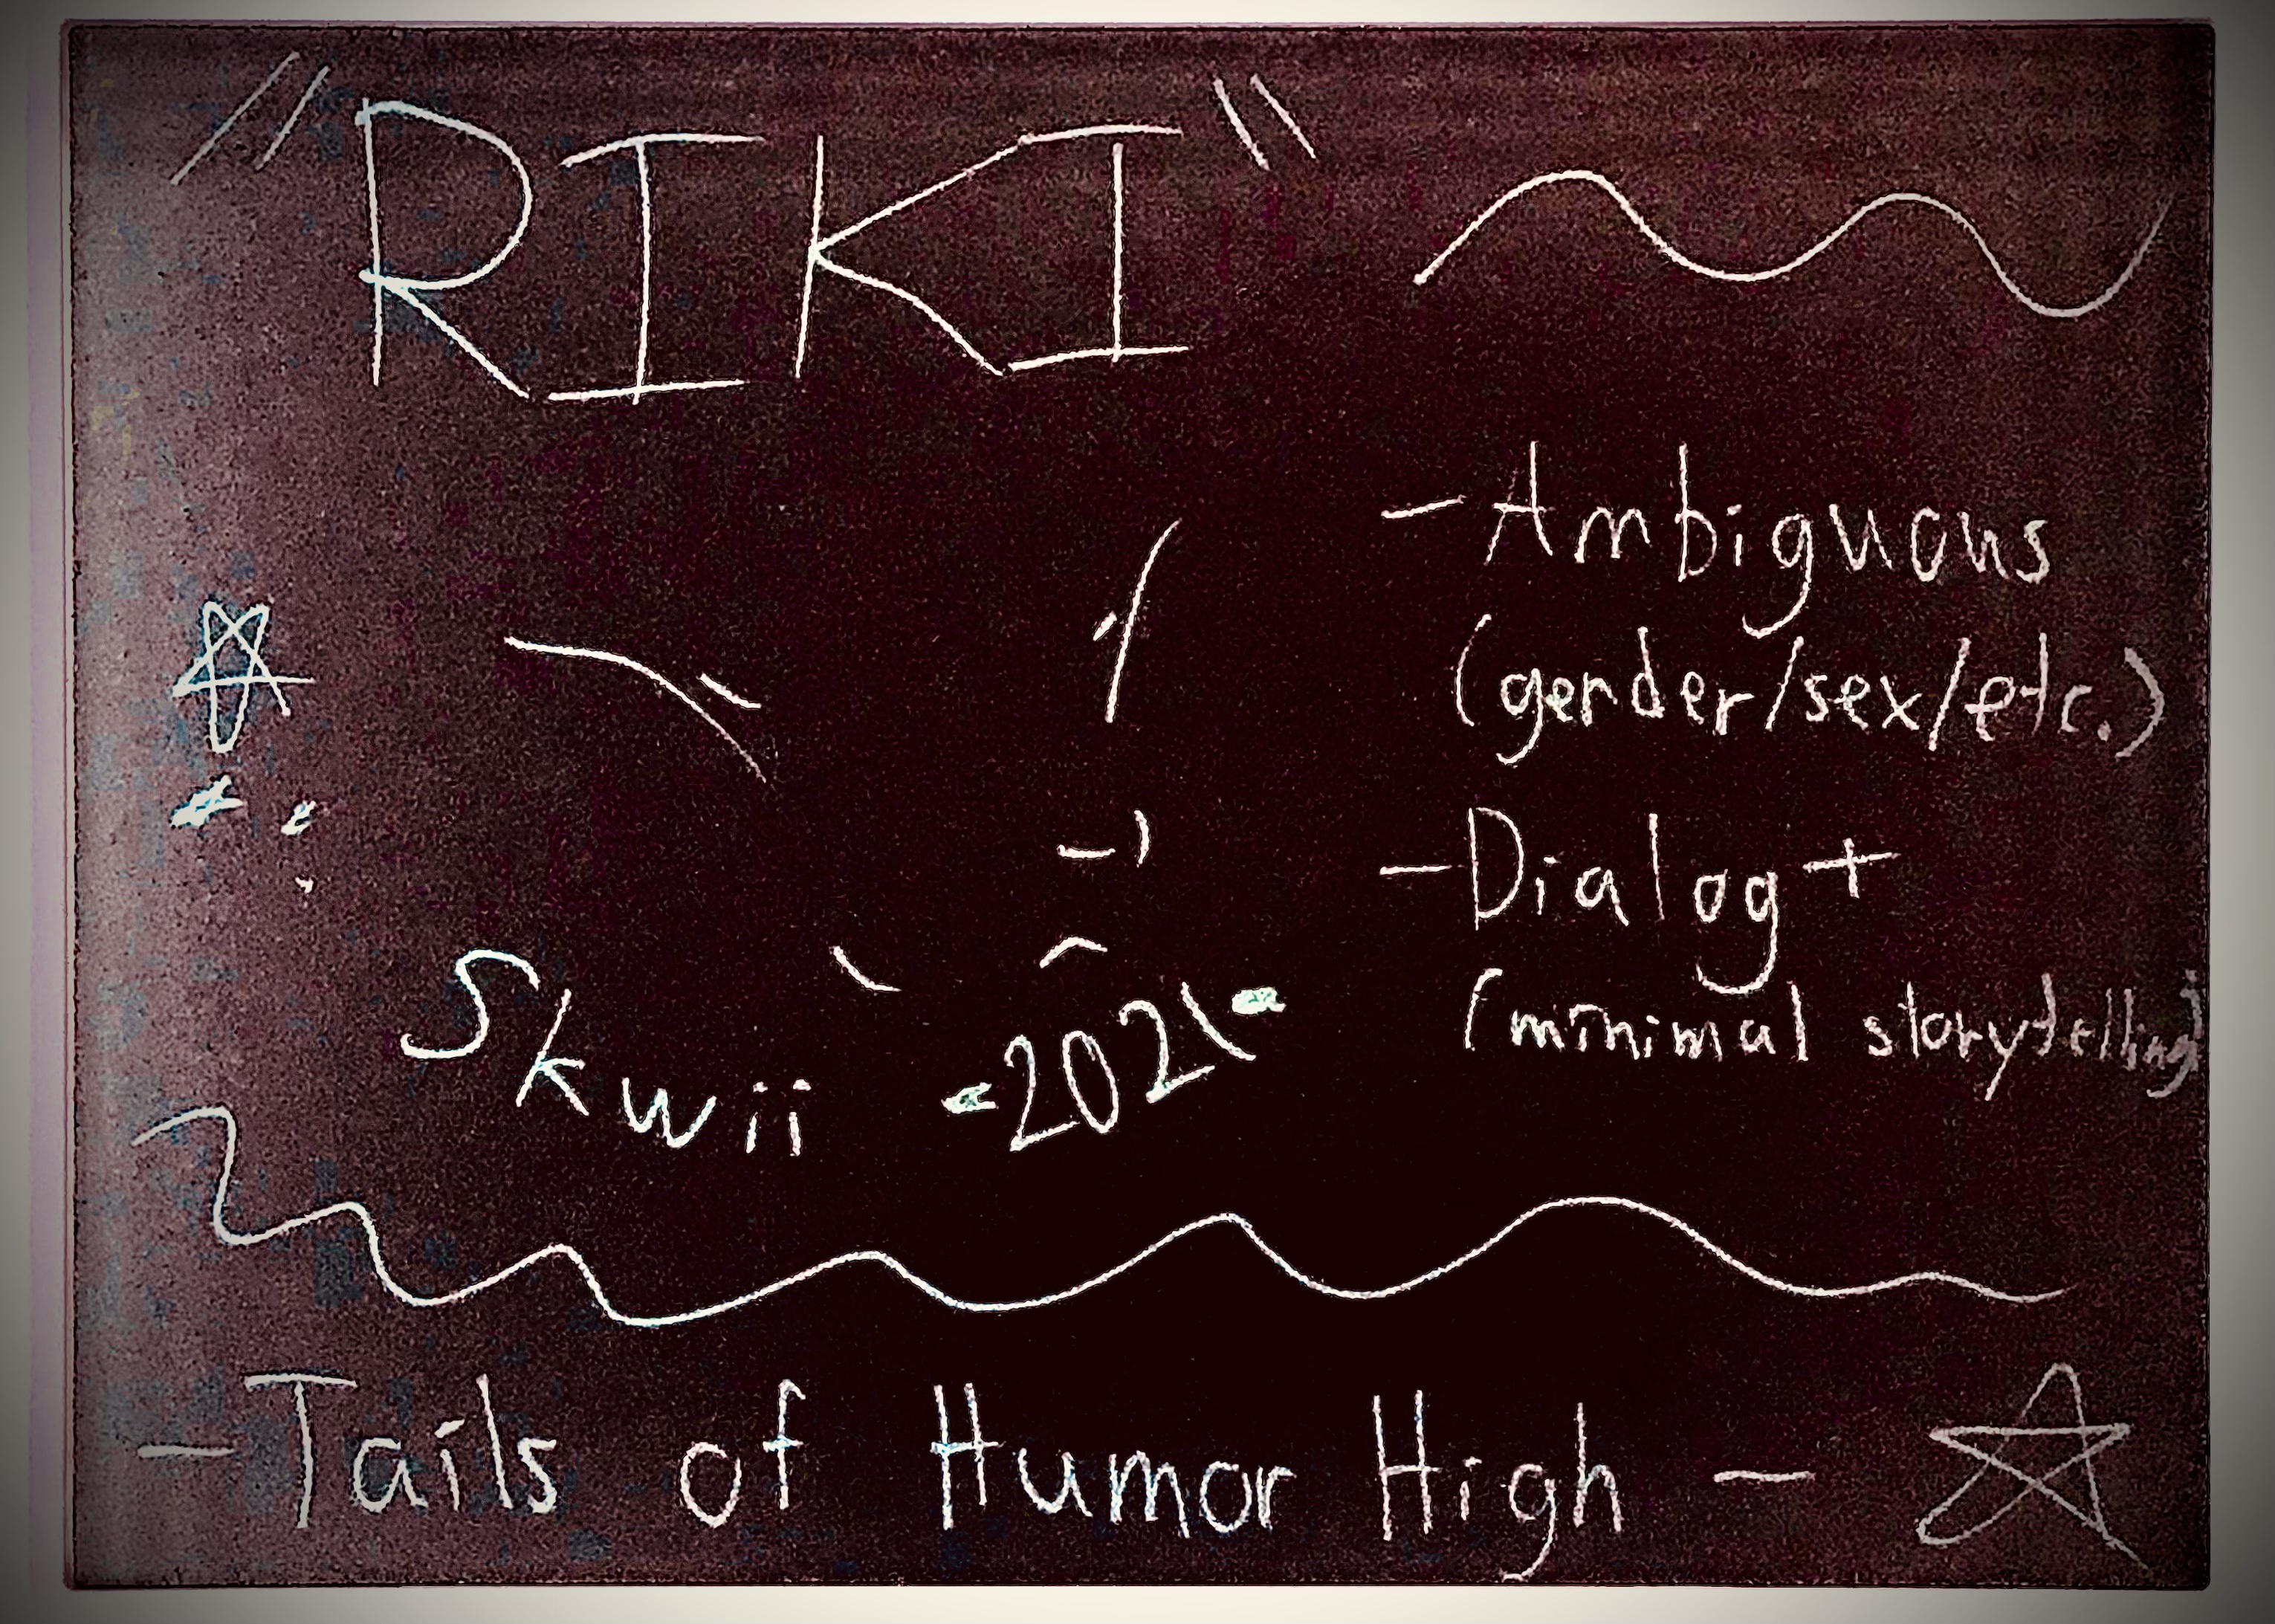 "RIKI"
-Ambiguous
(gender/sex/etc.)
-Dialog+
(minimal storytelling)
Skwii -2021-
-Tails of Humor High-